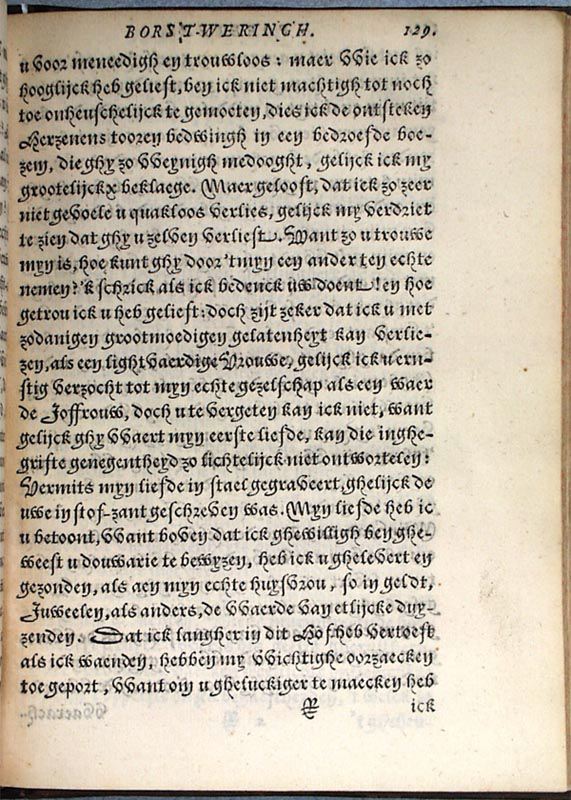 BORST-WERINCH. 129.
u voor meneedigh en trouwloos : maer Wie ick zo
hooglijck heb geliest, ben ick niet machtigh tot noch
toe onheuschelijck te gemoeten, dies ick de ontsteken
Herzenens tooren bedwingh in een bedroefde boe-
zem, die ghy zo Weynigh medooght, gelijck ick my
grootelijckx beklaege. Maer gelooft, dat ick zo zeer
niet gevoele u quakloos verlies, gelijck my verdriet
te zien dat ghy u zelven verliest. Want zo u trouwe
myn is, hoe kunt ghy door 'tmyn een ander ten echte
nemen? 'k schrick als ick bedenck uw doent! en hoe
getrou ick u heb geliest : doch zijt zeker dat ick u met
zodanigen grootmoedigen gelatenheyt kan verlie-
zen, als een lightvaerdige Vrouwe, gelijck ick u ern-
stig verzocht tot myn echte gezelschap als een waer
de Joffrouw, doch u te vergeten kan ick niet, want
gelijck ghy Waert myn eerste liefde, kan die inghe-
grifte genegentheyd zo lichtelijck niet ontwortelen :
Vermits myn liefde in stael gegraveert, ghelijck de
uwe in stof-zant geschreven was. Myn liefde heb ic
u betoont, Want boven dat ick ghewilligh ben ghe-
weest u douwarie te bewyzen, heb ick u ghelevert en
gezonden, als aen myn echte huysvrou, so in geldt,
Juweelen, als anders, de Waerde van etlijcke duy-
zenden. Dat ick langher in dit Hof heb vertoeft
als ick waenden, hebben my Wichtighe oorzaecken
toe geport, Want om u ghelückiger te maecken heb
R ick